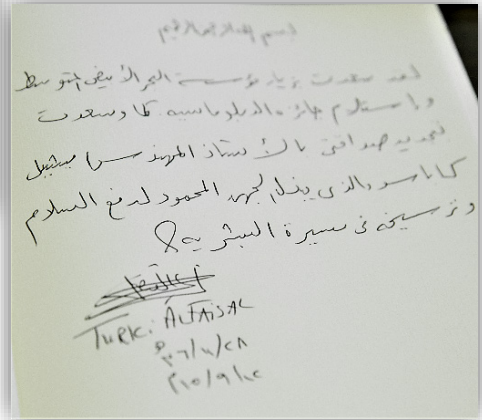 بسم الله الرحمن الرحيم
لقد سعدت بزيارة مؤسسة البحر الأبيض المتوسط
وإستلام جائزة الدبلوماسية كما وسعدت
تجديد صداقتي بالأستاذ المهندس ميشيل
كاباسو والذي يبذل الجهد المحمود لدفع السلام
وترسيخه في مسيرة البشرية
TURKI ALFAISAL